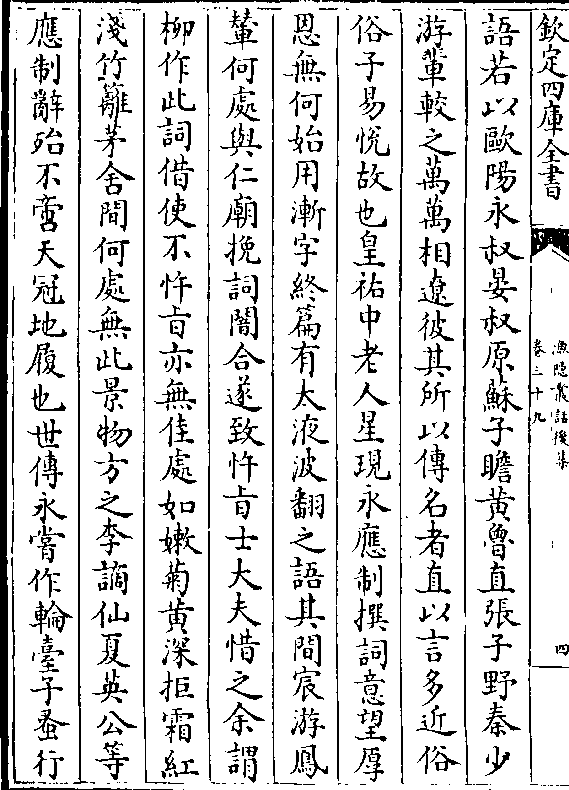 欽定四庫全書
漁隱叢話後集
卷三十九
四
語若以歐陽永叔晏叔原蘇子瞻黃魯直張子野秦少
游輩較之萬萬相遼彼其所以傳名者直以言多近俗
俗子易悅故也皇祐中老人星現永應制撰詞意望厚
恩無何始用漸字終篇有太液波翻之語其間宸游鳳
輦何處與仁廟挽詞闇合遂致忤㫖士大夫惜之余謂
柳作此詞借使不忤㫖亦無佳處如嫩菊黃深拒霜紅
淺竹籬茅舍間何處無此景物方之李謫仙夏英公等
應制辭殆不啻天冠地履也世傳永嘗作輪臺子蚤行